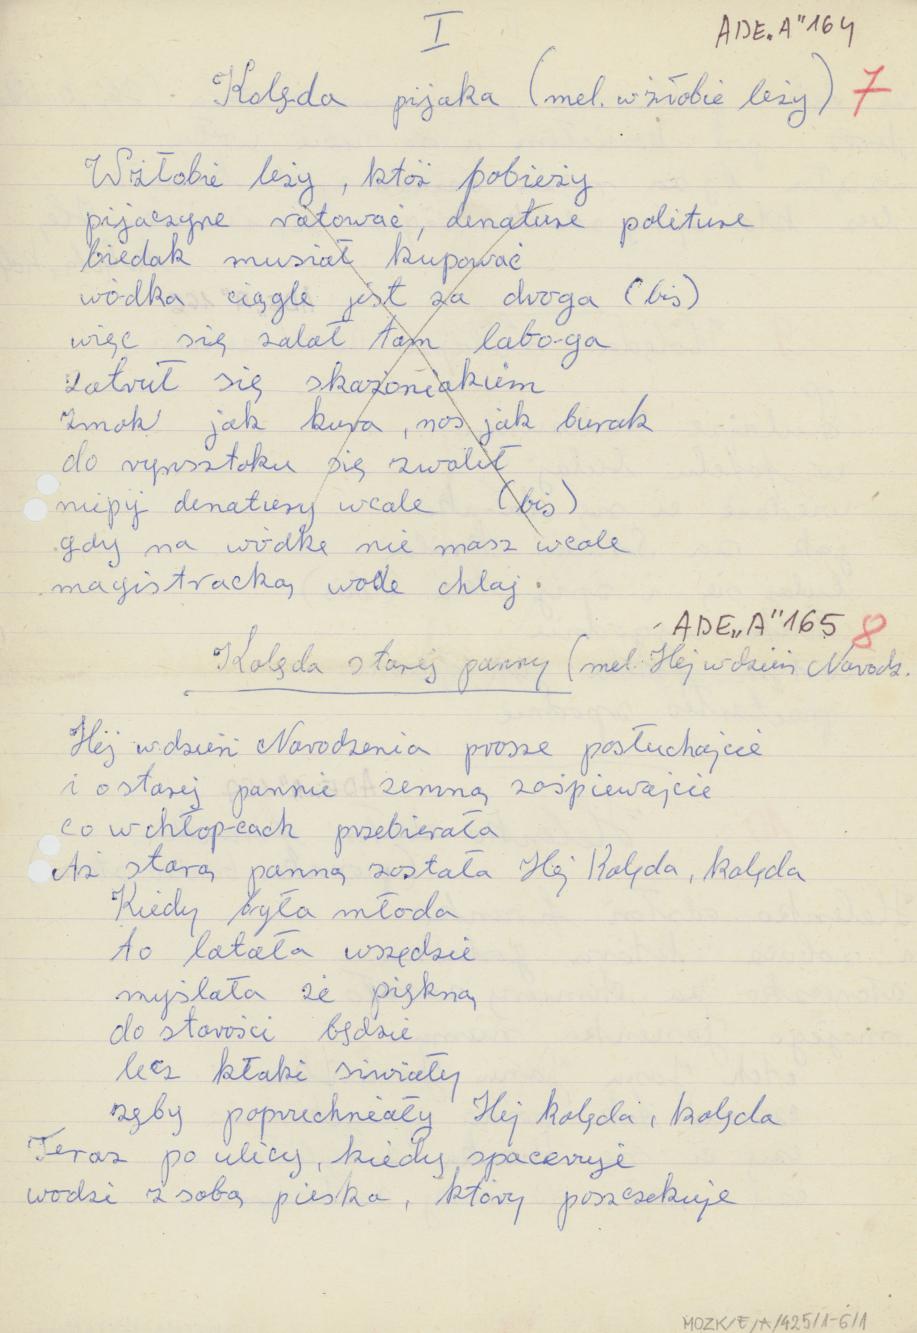 I
ADE „A" 164
Kolęda pijaka (mel. w żłobie leży) 7
Wżłobie leży, któż pobieży
pijaczyne ratować, denature politure
biedak musiał kupować
wódka ciągle jest za droga (bis)
więc się zalał tam labo-ga
zatruł się skażoniakiem
zmok jak kura, nos jak burak
do rynsztoku się zwalił
niepij denatury wcale (bis)
gdy na wódke nie masz wcale
magistracką wode chlaj.
ADE „A" 165 8
Kolęda starej panny (mel. Hej w dzień Narodz.
Hej w dzień Narodzenia prosze posłuchajcie
i o starej pannie zemną zaśpiewajcie
co w chłop-cach przebierała
Aż starą panną została Hej Kolęda, kolęda
Kiedy była młoda
to latała wszędzie
myślała że piękną
do starości będzie
lecz kłaki siwiały
zęby popruchniały Hej kolęda, kolęda
Teraz po ulicy, kiedy spaceruje
wodzi z sobą pieska, który poszczekuje
MOZK/E/A/425/1-6/1